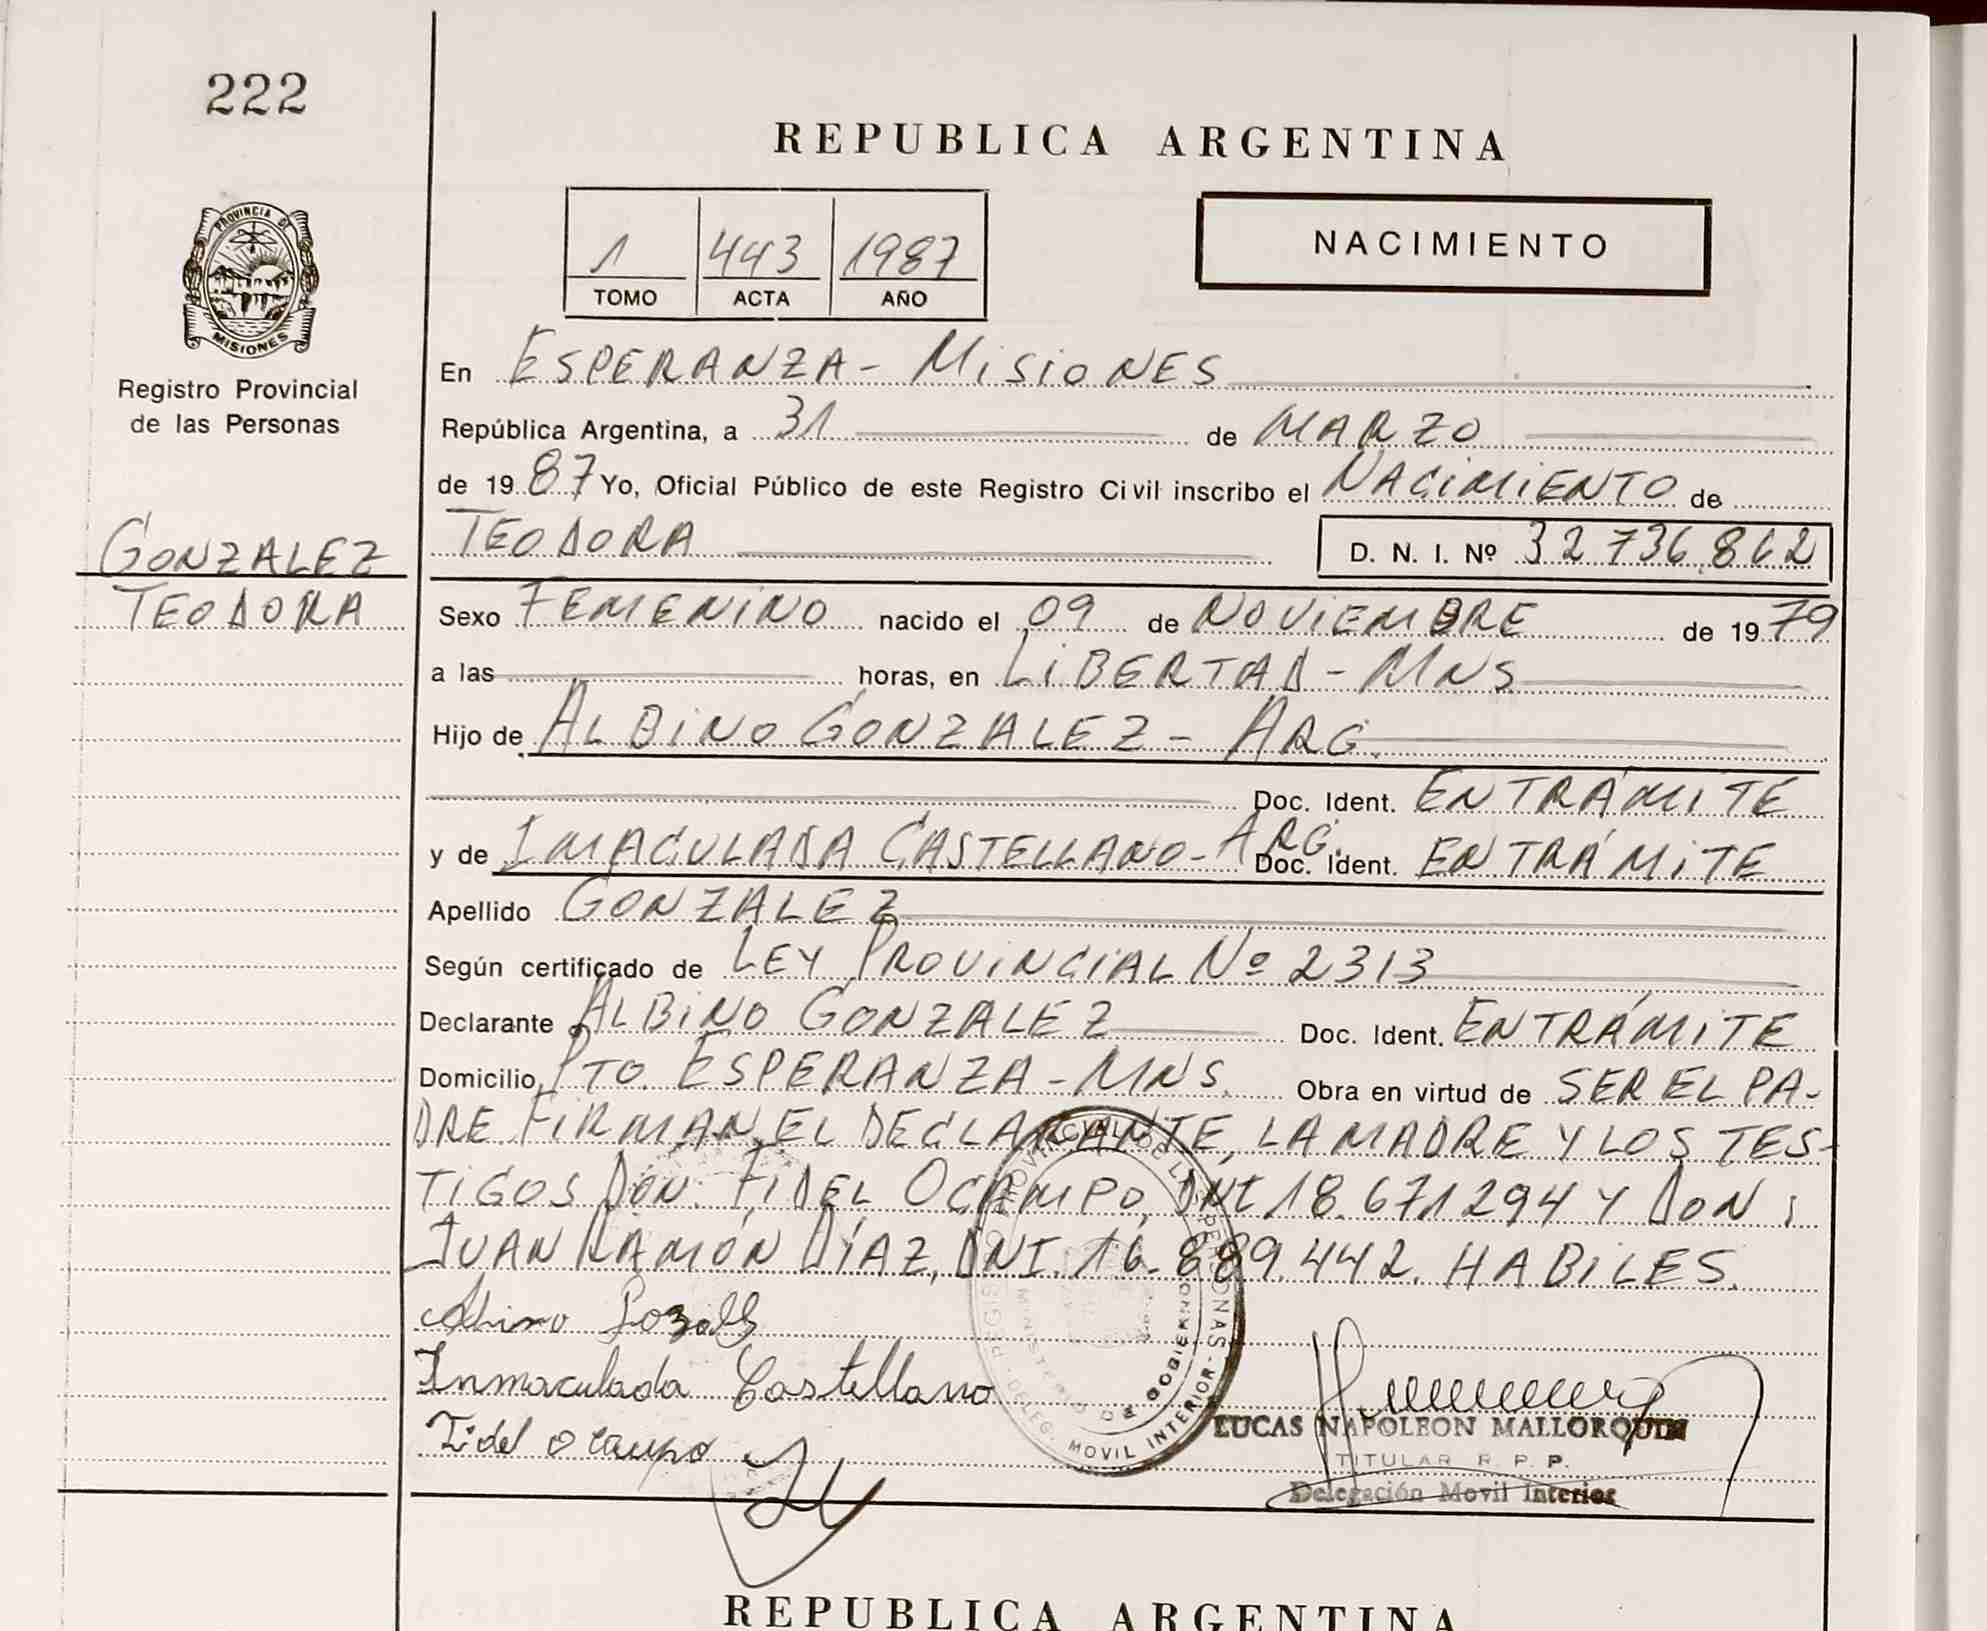 222
REPUBLICA ARGENTINA
PROVINCIA DE
MISIONES
Registro Provincial
de las Personas
1 443 1987
TOMO ACTA AÑO
NACIMIENTO
En ESPERANZA - MISIONES
República Argentina, a 31 de MARZO
de 1987 Yo, Oficial Público de este Registro Civil inscribo el NACIMIENTO de
GONZALEZ
TEODORA
TEODORA D. N. I. Nº 32.736.862
Sexo FEMENINO nacido el 09 de NOVIEMBRE de 1979
a las horas, en LIBERTAD - MNS
Hijo de ALBINO GONZALEZ - ARG.
Doc. Ident. EN TRÁMITE
y de IMACULADA CASTELLANO - ARG. Doc. Ident. EN TRÁMITE
Apellido GONZALEZ
Según certificado de LEY PROVINCIAL Nº 2313
Declarante ALBINO GONZALEZ Doc. Ident. EN TRÁMITE
Domicilio PTO. ESPERANZA - MNS. Obra en virtud de SER EL PA-
DRE. FIRMAN, EL DECLARANTE, LA MADRE Y LOS TES-
TIGOS DON: FIDEL OCAMPO, DNI 18.671294 Y DON:
JUAN RAMÓN DÍAZ, DNI. 16.889.442. HABILES.
Inmaculada Castellano
Fidel Ocampo
REGISTRO PROVINCIAL DE LAS PERSONAS
MINISTERIO DE GOBIERNO
DELEG. MOVIL INTERIOR
LUCAS NAPOLEON MALLORQUIN
TITULAR R. P. P.
Delegación Movil Interior
REPUBLICA ARGENTINA